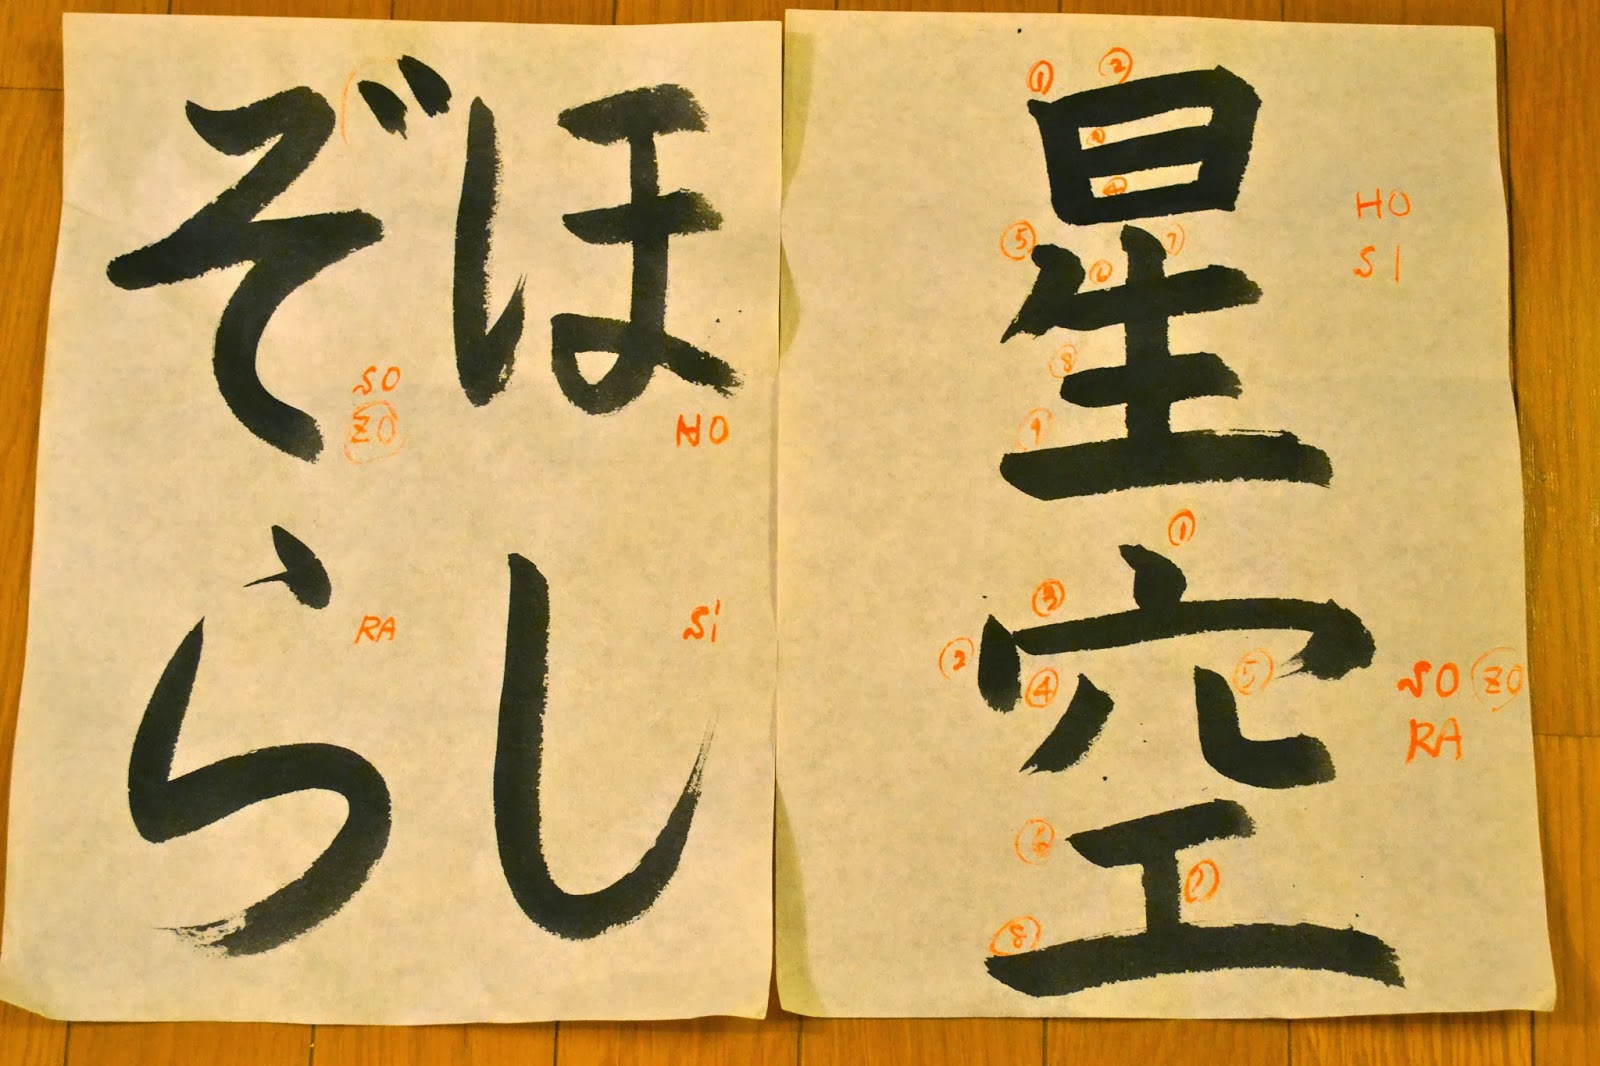 星空
①
②
③
④
⑤
⑥
⑦
⑧
⑨
HO
SI
①
②
③
④
⑤
⑥
⑦
⑧
SO ZO
RA
ほし
HO
SI
ぞら
SO
ZO
RA